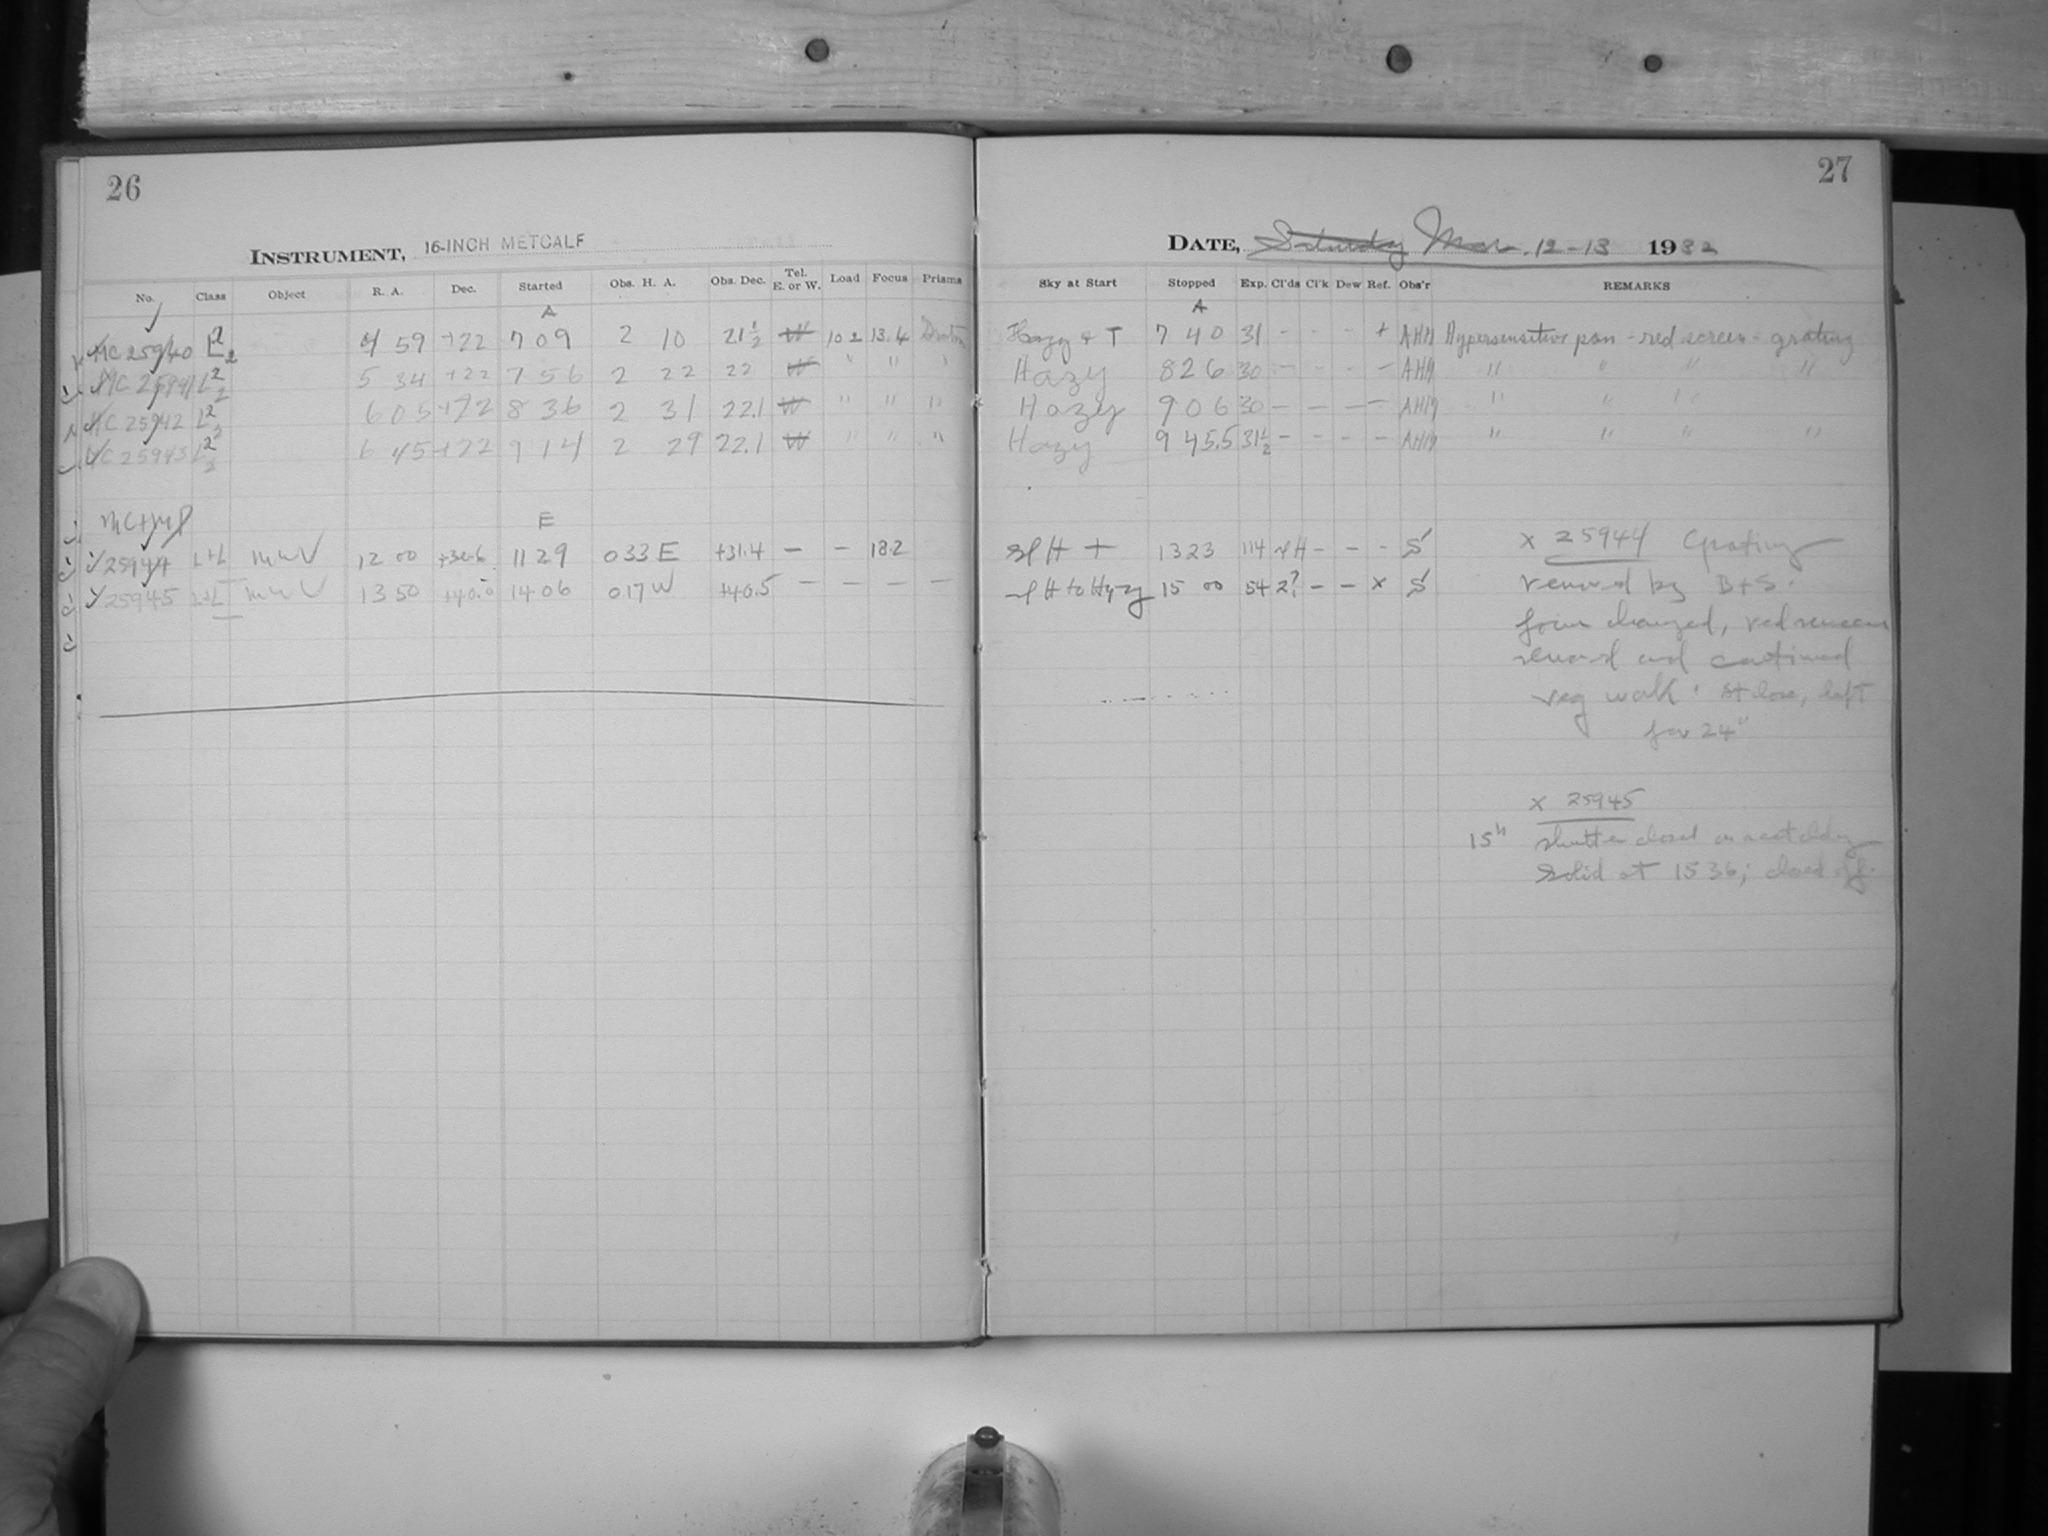 26
INSTRUMENT, 16-INCH METCALF
No. Class Object R. A. Dec. Started Obs. H. A. Obs. Dec. Tel. E. or W. Load Focus Prisms
A
MC 25940 L2 4 59 +22 7 09 2 10 21 1/2 W 102 13.4
MC 25941 L2 5 34 +22 7 56 2 22 22 W " " "
MC 25942 L2 6 05 +22 8 36 2 31 22.1 W " " "
MC 25943 L2 6 45 +22 9 14 2 29 22.1 W " " "
E
25944 L+L 12 00 +30.6 11 29 0 33 E +31.4 — — 18.2
25945 L+L 13 50 +40.0 14 06 0 17 W +40.5 — — — —
27
DATE, Saturday Mar. 12-13 1932
Sky at Start Stopped Exp. Cl'ds Cl'k Dew Ref. Obs'r REMARKS
A
Hazy + T 7 40 31 - - - + AHM Hypersensitive pan - red screen - grating
Hazy 8 26 30 - - - - AHM " " " "
Hazy 9 06 30 - - - - AHM " " "
Hazy 9 45.5 31 1/2 - - - - AHM " " " "
sl H + 13 23 114 sl H - - - S x 25944 Grating
sl H to Hazy 15 00 54 2? - - x S removed by B+S.
focus changed, red screen
removed and continued
reg work. At close, left
for 24"
x 25945
15h shutter closed
solid at 15 36; closed off.